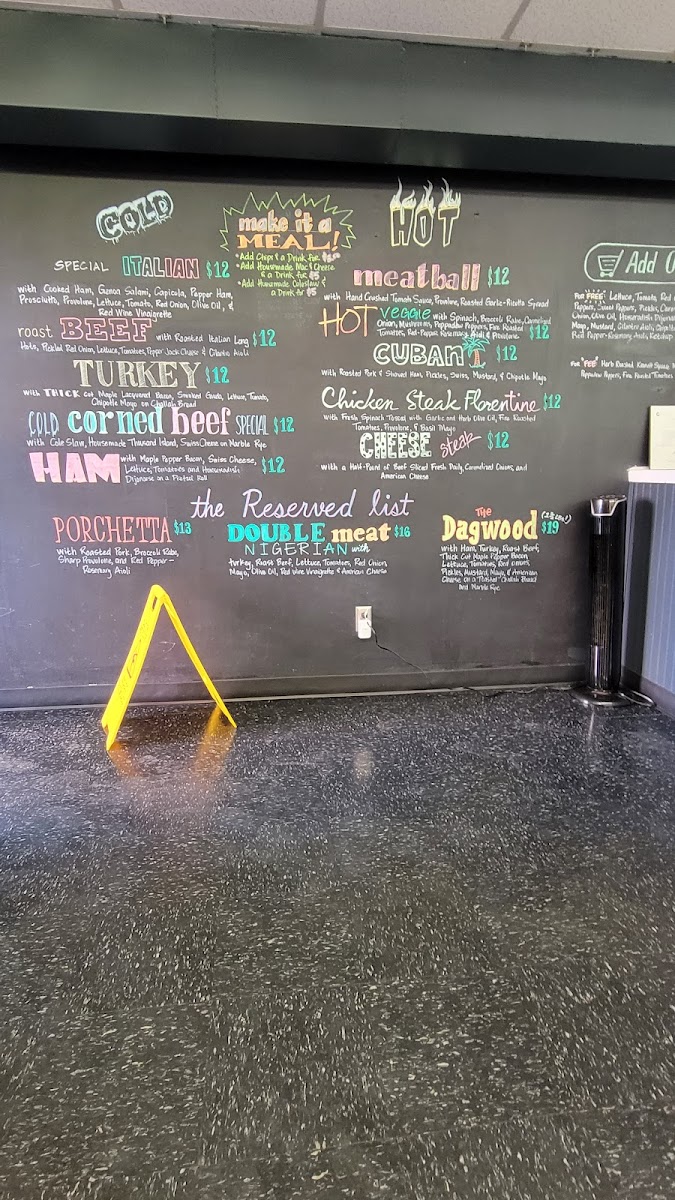 COLD
SPECIAL ITALIAN $12
with Cooked Ham, Genoa Salami, Capicola, Pepper Ham,
Prosciutto, Provolone, Lettuce, Tomato, Red Onion, Olive Oil, &
Red Wine Vinaigrette
roast BEEF with Roasted Italian Long $12
Hots, Pickled Red Onion, Lettuce, Tomatoes, Pepper Jack Cheese & Cilantro Aioli
TURKEY $12
with THICK cut Maple Lacquered Bacon, Smoked Gouda, Lettuce, Tomato,
Chipotle Mayo on Challah Bread
COLD corned beef SPECIAL $12
with Cole Slaw, Housemade Thousand Island, Swiss Cheese on Marble Rye
HAM with Maple Pepper Bacon, Swiss Cheese,
Lettuce, Tomatoes and Horseradish $12
Dijonaise on a Pretzel Roll
make it a
MEAL!
• Add Chips & a Drink for
• Add Housemade Mac & Cheese
& a Drink for $5
• Add Housemade Coleslaw &
a Drink for $5
HOT
meatball $12
with Hand Crushed Tomato Sauce, Provolone, Roasted Garlic-Ricotta Spread
HOT veggie with Spinach, Broccoli Rabe, Caramelized
Onion, Mushrooms, Peppadew Peppers, Fire Roasted $12
Tomatoes, Red-Pepper Rosemary Aioli & Provolone
CUBAN $12
with Roasted Pork & Shaved Ham, Pickles, Swiss, Mustard, & Chipotle Mayo
Chicken Steak Florentine $12
with Fresh Spinach Tossed with Garlic and Herb Olive Oil, Fire Roasted
Tomatoes, Provolone, & Basil Mayo
CHEESE steak $12
with a Half-Pound of Beef Sliced Fresh Daily, Caramelized Onions, and
American Cheese
Add O
For FREE! Lettuce, Tomato, Red
Peppers, Sweet Peppers, Pickles,
Onion, Olive Oil, Housemade
Mayo, Mustard, Cilantro Aioli, Chipotle
Bell Pepper-Rosemary Aioli, Ketchup
For "FEE" Herb Roasted
Peppadew Peppers, Fire Roasted Tomatoes
the Reserved list
PORCHETTA $13
with Roasted Pork, Broccoli Rabe,
Sharp Provolone, and Red Pepper-
Rosemary Aioli
DOUBLE meat $16
NIGERIAN with
turkey, Roast Beef, Lettuce, Tomatoes, Red Onion,
Mayo, Olive Oil, Red Wine Vinaigrette & American Cheese
The
Dagwood $19
with Ham, Turkey, Roast Beef,
Thick Cut Maple Pepper Bacon
Lettuce, Tomatoes, Red onions,
Pickles, Mustard, Mayo, & American
Cheese on a Toasted Challah Bread
and Marble Rye